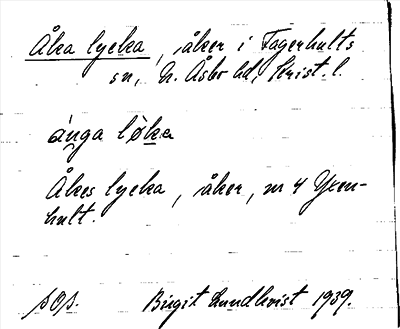 Åka lycka, åker i Fagerhults
sn, N. Åsbo hd, Krist. l.
ánga løka
Åkes lycka, åker, nr 4 Yxen-
hult.
Birgit Lundkvist 1939.